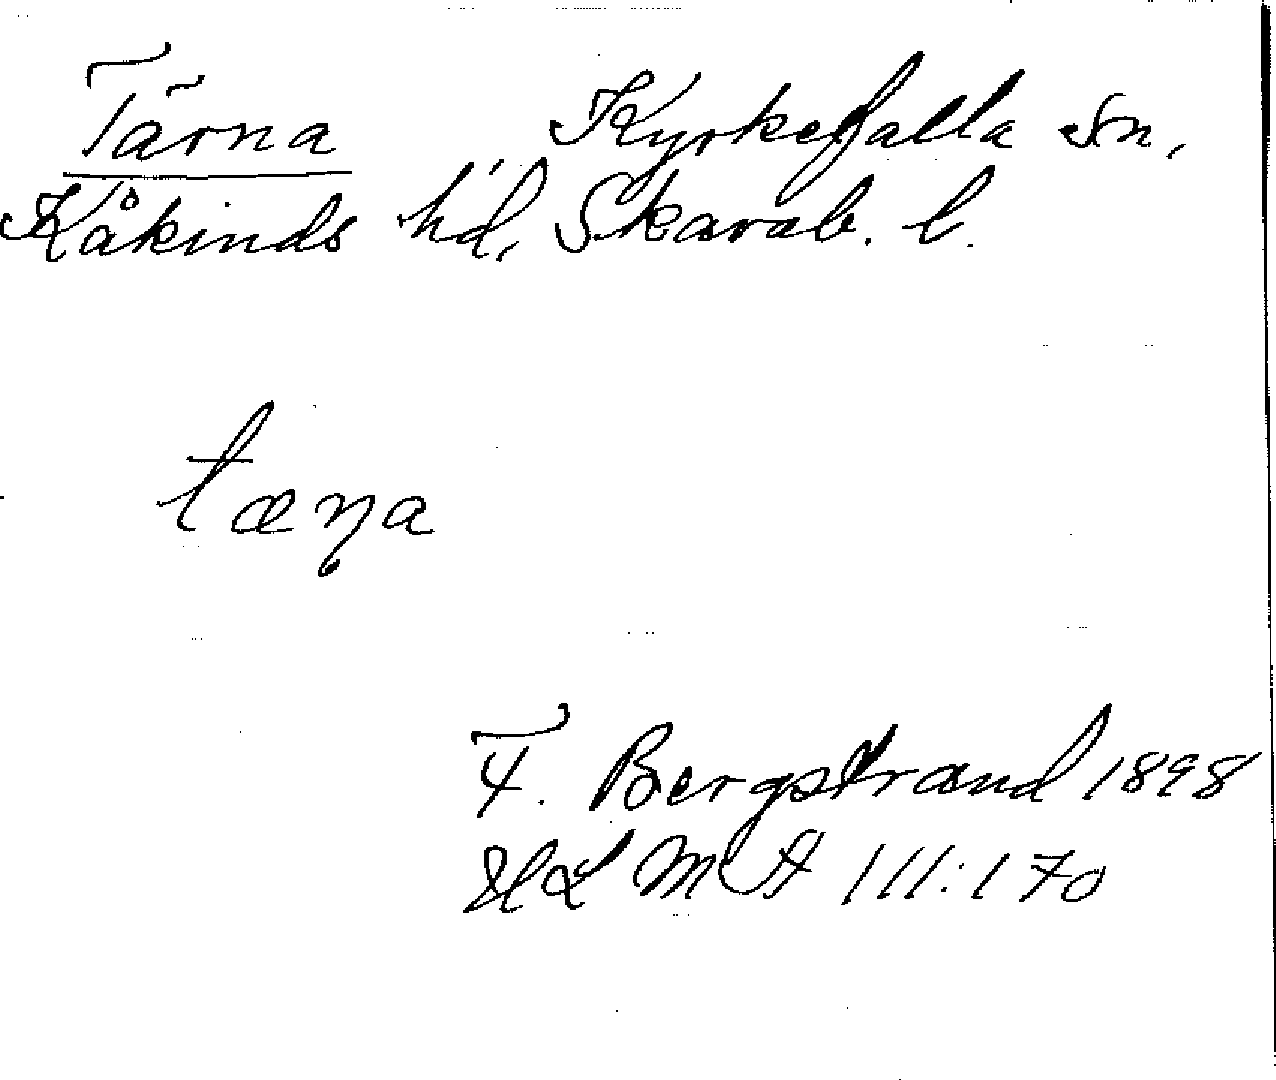 Tärna Kyrkefalla Sn,
Kåkinds hd, Skarab. l.
tæɳa
F. Bergstrand 1898
III:170